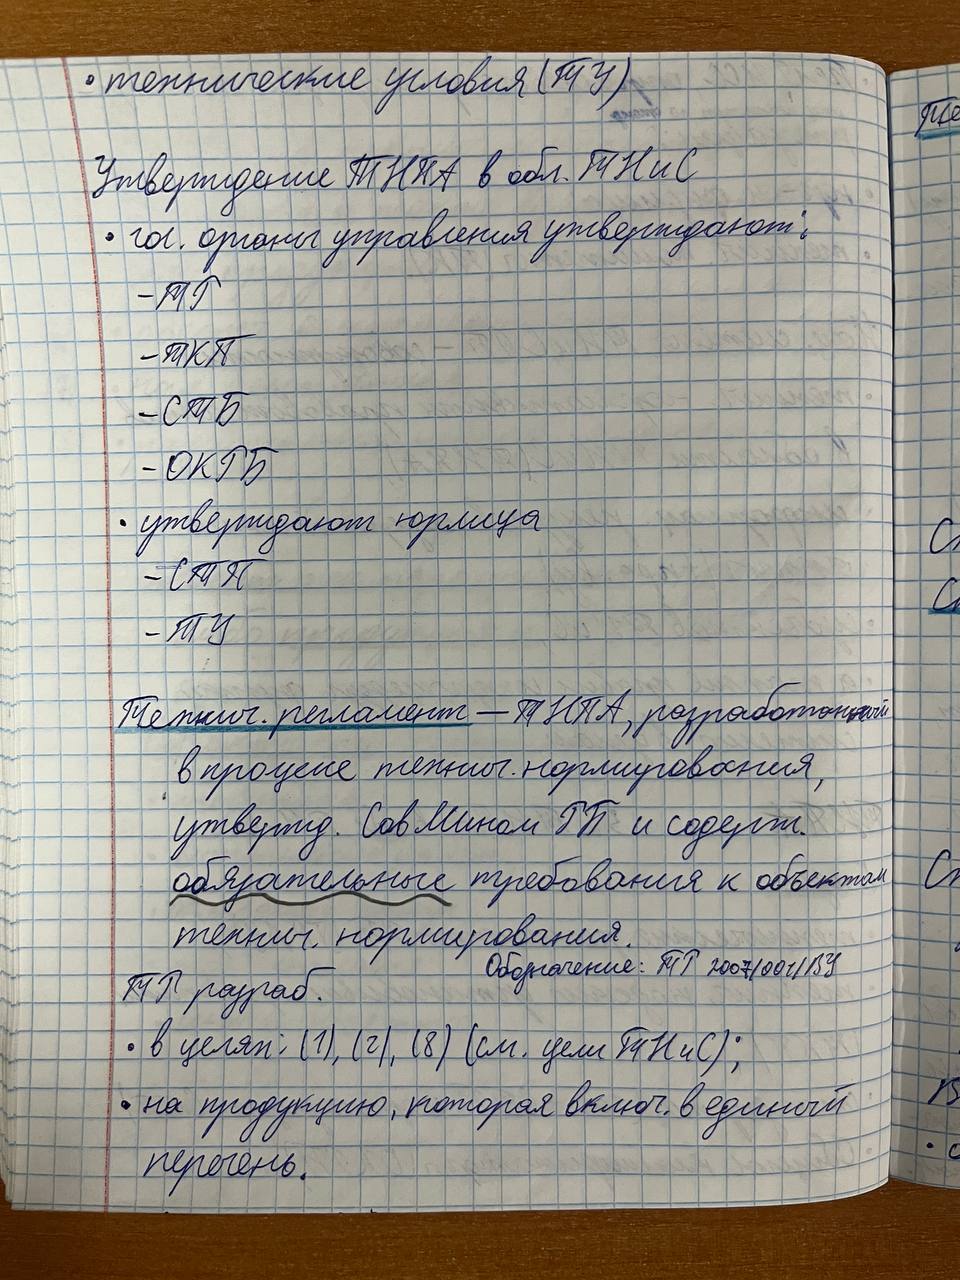 • технические условия (ТУ)
Утверждение ТНПА в обл. ТНиС
• гос. органы управления утверждают:
- ТР
- ТКП
- СТБ
- ОКРБ
• утверждают юрлица
- СТП
- ТУ
Технич. регламент — ТНПА, разработанный
в процессе технич. нормирования,
утвержд. СовМином РБ и содерж.
обязательные требования к объектам
технич. нормирования.
Обозначение: ТР 2007/001/BY
ТР разраб.
• в целях: (1), (2), (8) (см. цели ТНиС);
• на продукцию, которая включ. в единый
перечень.